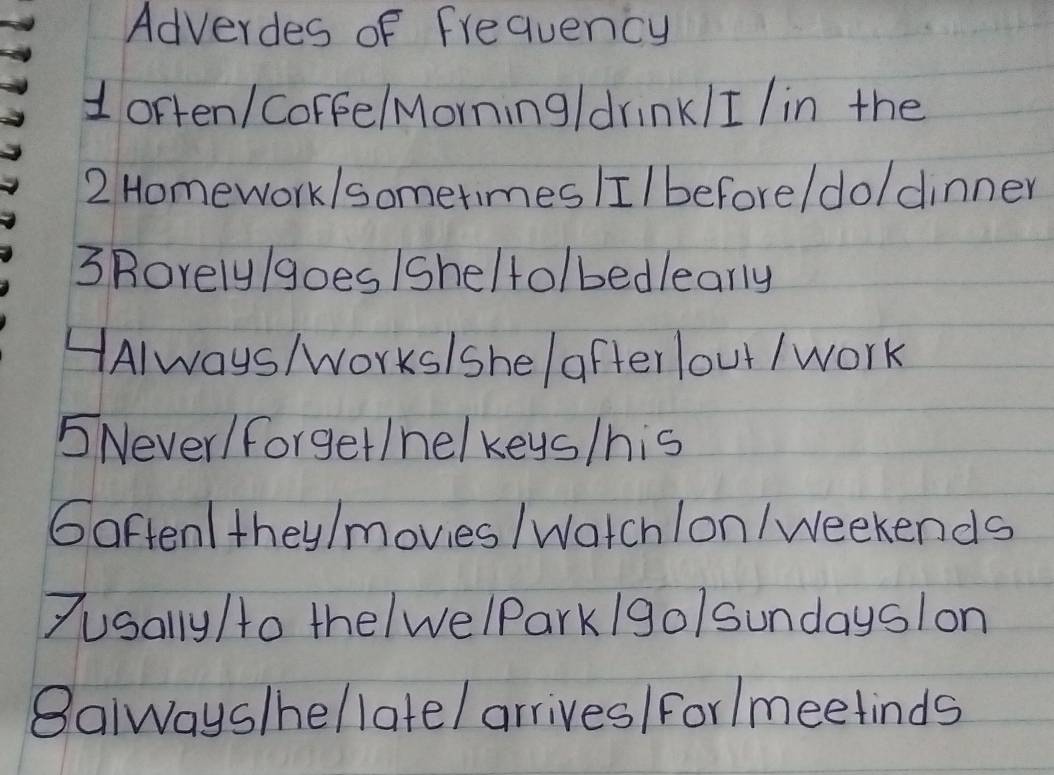 Adverdes of frequency
1 often/Coffe/Morning/drink/I/in the
2 Homework/sometimes/I/before/do/dinner
3 Rorely/goes/She/to/bed/early
4 Always/Works/She/after/out/work
5 Never/forget/he/keys/his
6 aften/they/movies/Watch/on/weekends
7 usally/to the/we/Park/go/Sundays/on
8 always/he/late/arrives/for/meetinds